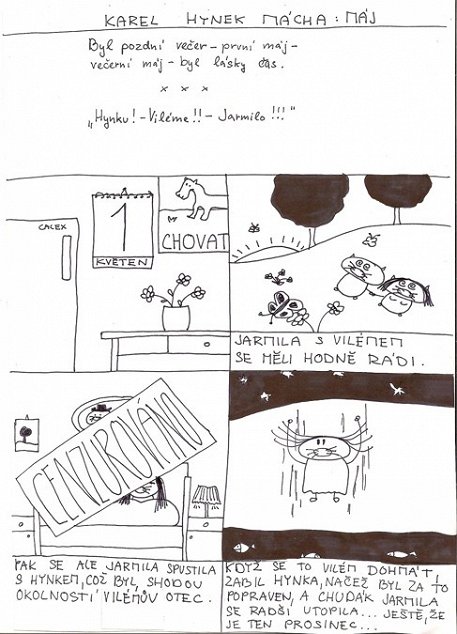 KAREL HYNEK MÁCHA: MÁJ
Byl pozdní večer - první máj -
večerní máj - byl lásky čas.
x x x
„Hynku! - Viléme!! - Jarmilo!!!"
CALEX
1
KVĚTEN
CHOVAT
JARMILA S VILÉMEM
SE MĚLI HODNĚ RÁDI.
CENZUROVÁNO
PAK SE ALE JARMILA SPUSTILA
S HYNKEM, COŽ BYL, SHODOU
OKOLNOSTÍ VILÉMŮV OTEC.
KDYŽ SE TO VILÉM DOHMÁT,
ZABIL HYNKA, NAČEŽ BYL ZA TO
POPRAVEN, A CHUDÁK JARMILA
SE RADŠI UTOPILA... JEŠTĚ, ŽE
JE TEN PROSINEC...